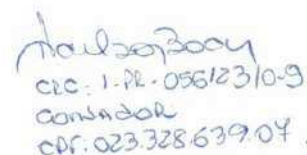 CRC: 1-PR-056123/0-9
CONTADOR
CPF: 023.328.639.07